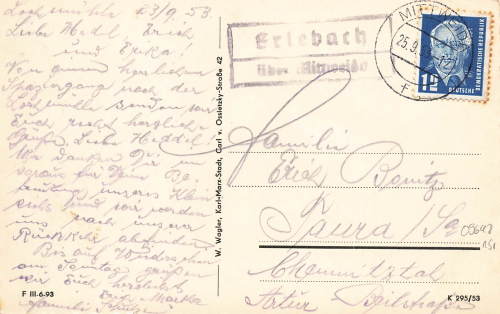 Lochmühle 23/9.53.
Liebe Hedel, Erich
und Erika!
Von einem herrlichen
Spaziergang nach der
Lochmühle senden wir
Euch recht herzliche
Grüße. Liebe Heddel!
Wir danken Dir im
voraus für Deine Be-
mühung unseres Klein
und wir werden
uns nach unserer
Rückkehr
Bis auf Wiedersehen
am Sonntag grüßen
wir Euch herzlichst
Erich, Martha
Familie
F III-6-93
W. Wagler, Karl-Marx-Stadt, Carl v. Ossietzky-Straße 42
Erlebach
über Mittweida
MITTWEIDA
25.9.
f
12
DEUTSCHE
DEMOKRATISCHE REPUBLIK
Familie
Erich Bonitz
Taura/Sa
09648
Chemnitztal
Artur
K 295/53